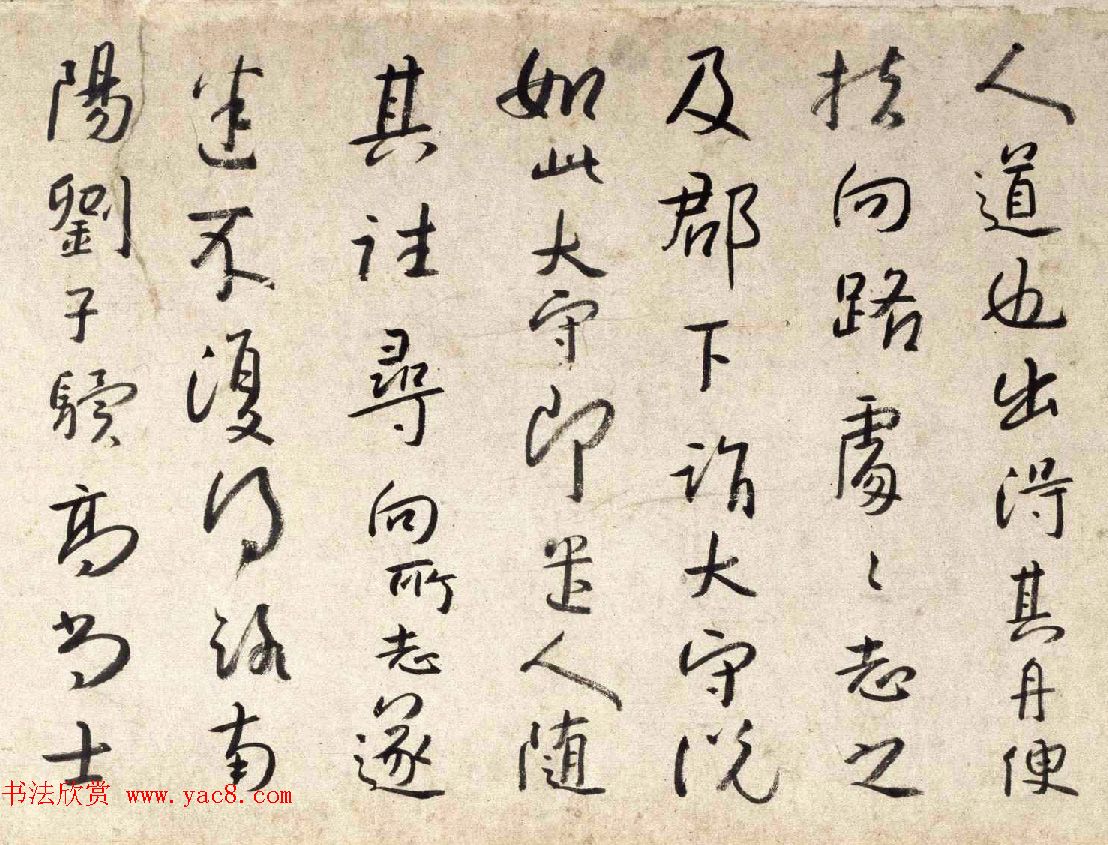 人道也出得其舟便
扶向路處々志之
及郡下詣大守説
如此大守即遣人随
其往尋向所志遂
迷不復得路南
陽劉子驥高尚士
书法欣赏 www.yac8.com